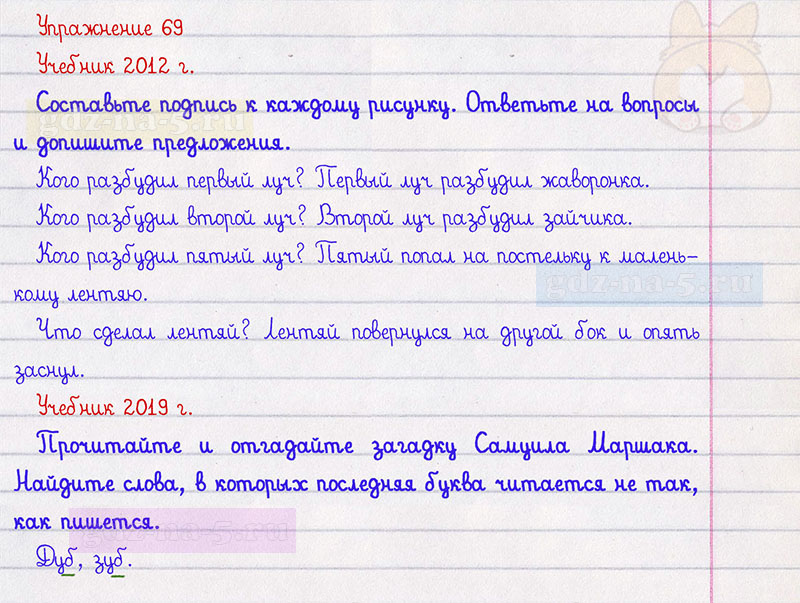 Упражнение 69
Учебник 2012 г.
Составьте подпись к каждому рисунку. Ответьте на вопросы
и допишите предложения.
gdz-na-5.ru
Кого разбудил первый луч? Первый луч разбудил жаворонка.
Кого разбудил второй луч? Второй луч разбудил зайчика.
Кого разбудил пятый луч? Пятый попал на постельку к малень-
кому лентяю.
gdz-na-5.ru
Что сделал лентяй? Лентяй повернулся на другой бок и опять
заснул.
Учебник 2019 г.
Прочитайте и отгадайте загадку Самуила Маршака.
Найдите слова, в которых последняя буква читается не так,
как пишется.
gdz-na-5.ru
Дуб, зуб.